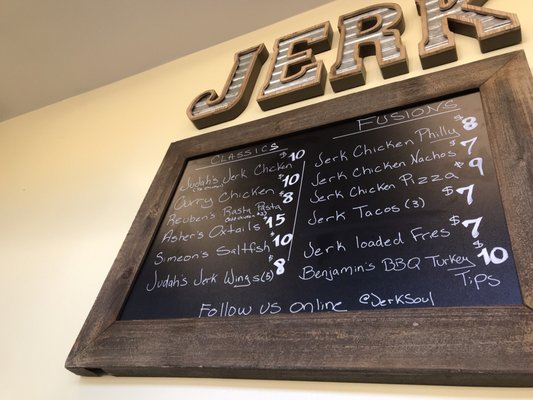 JERK
CLASSICS
Judah's Jerk Chicken $10
Curry Chicken $10
Reuben's Rasta Pasta $8
Asher's Oxtails $15
Simeon's Saltfish $10
Judah's Jerk Wings(5) $8
FUSIONS
Jerk Chicken Philly $8
Jerk Chicken Nachos $7
Jerk Chicken Pizza $9
Jerk Tacos (3) $7
Jerk loaded Fries $7
Benjamin's BBQ Turkey $10
Tips
Follow us online @JerkSoul